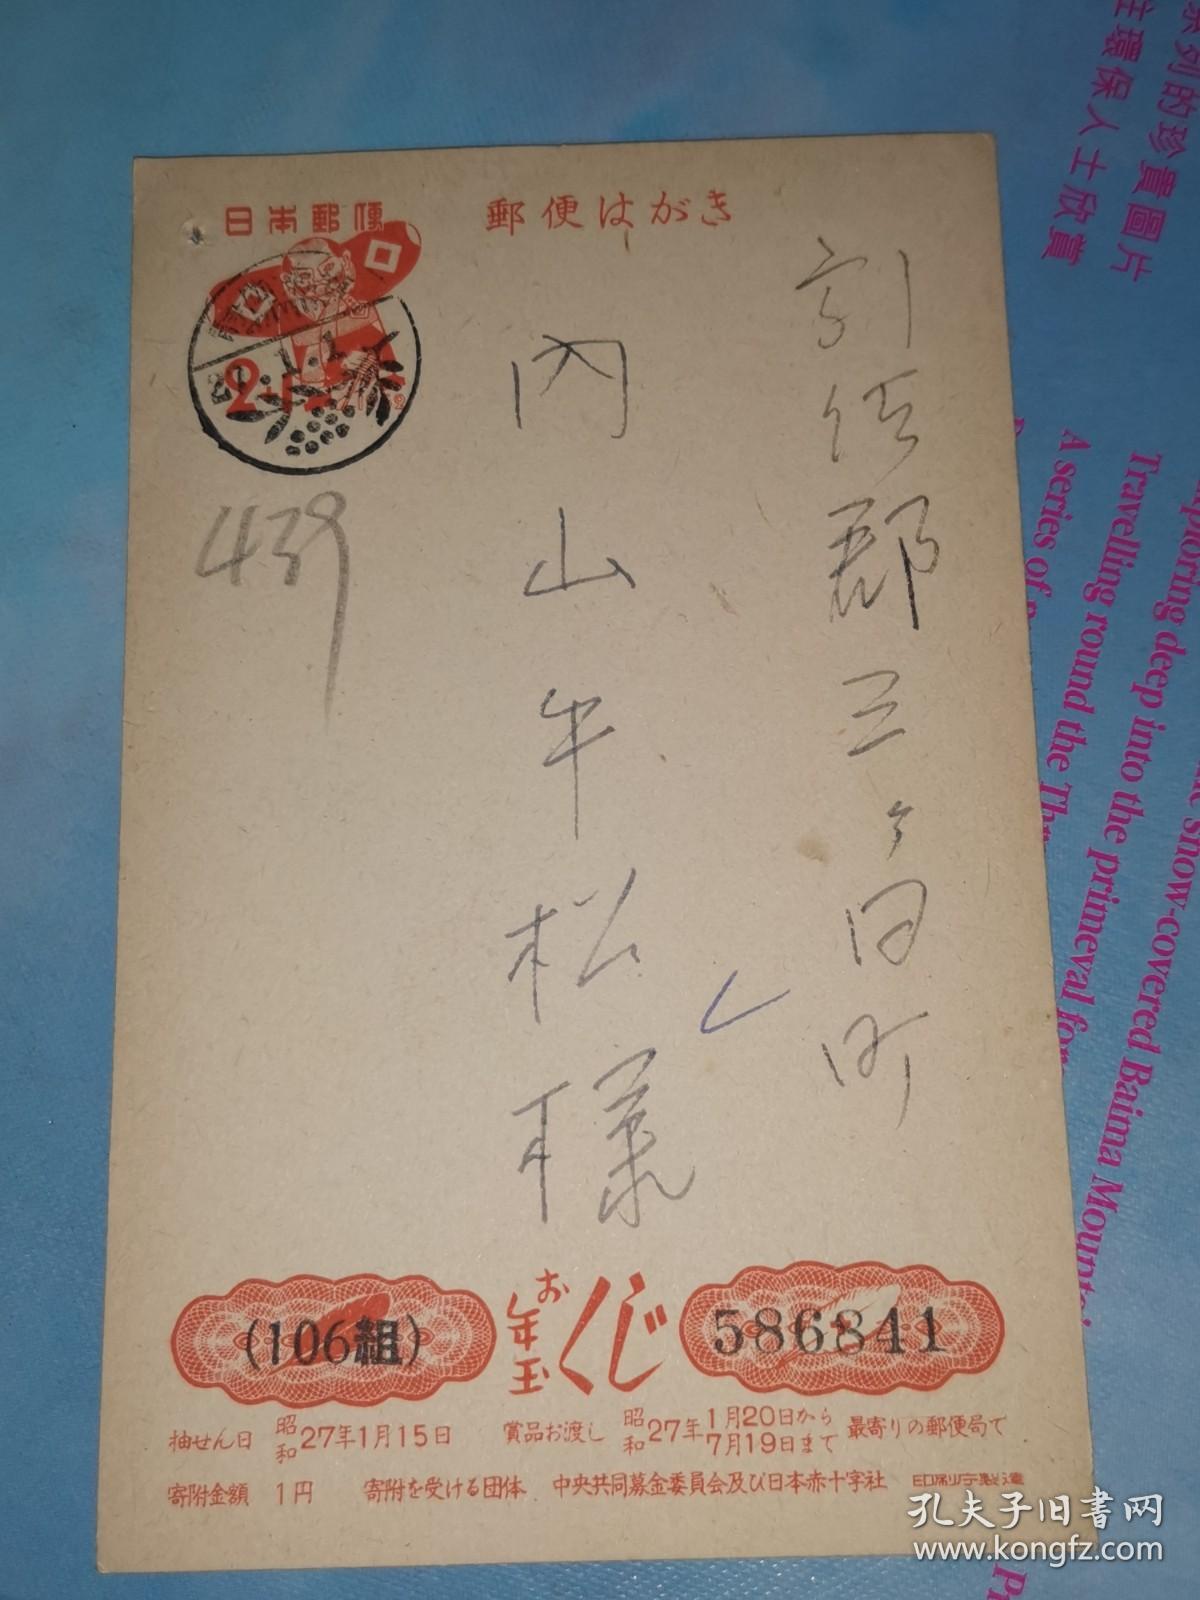 日本郵便
郵便はがき
引佐郡三ヶ日町
内山午松様
27.1.1
2+1
439
(106組)
お年玉くじ
586841
抽せん日 昭和27年1月15日 賞品お渡し 昭和27年1月20日から7月19日まで 最寄りの郵便局で
寄附金額 1円 寄附を受ける団体 中央共同募金委員会及び日本赤十字社 印刷庁製造
系列的珍貴圖片
環保人士欣賞
exploring deep into the primeval for
snow-covered Baima Mountai
Travelling round the Thr
A series of
孔夫子旧书网
www.kongfz.com